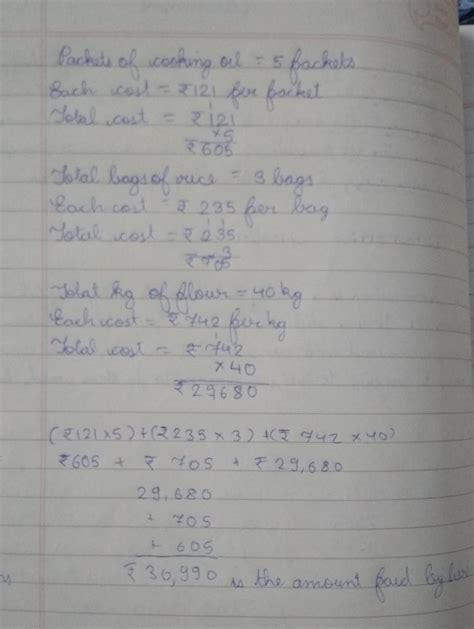 Packets of cooking oil = 5 packets
Each cost = ₹121 per packet
Total cost = ₹121
×5
₹605
Total bags of rice = 3 bags
Each cost = ₹ 235 per bag
Total cost = ₹ 235
3
₹ 705
Total kg of flour = 40 kg
Each cost = ₹742 per kg
Total cost = ₹ 742
×40
₹29680
(₹121×5)+(₹235 × 3) +(₹ 742 × 40)
₹605 + ₹ 705 + ₹29,680
29,680
+ 705
+ 605
₹ 30,990 is the amount paid by